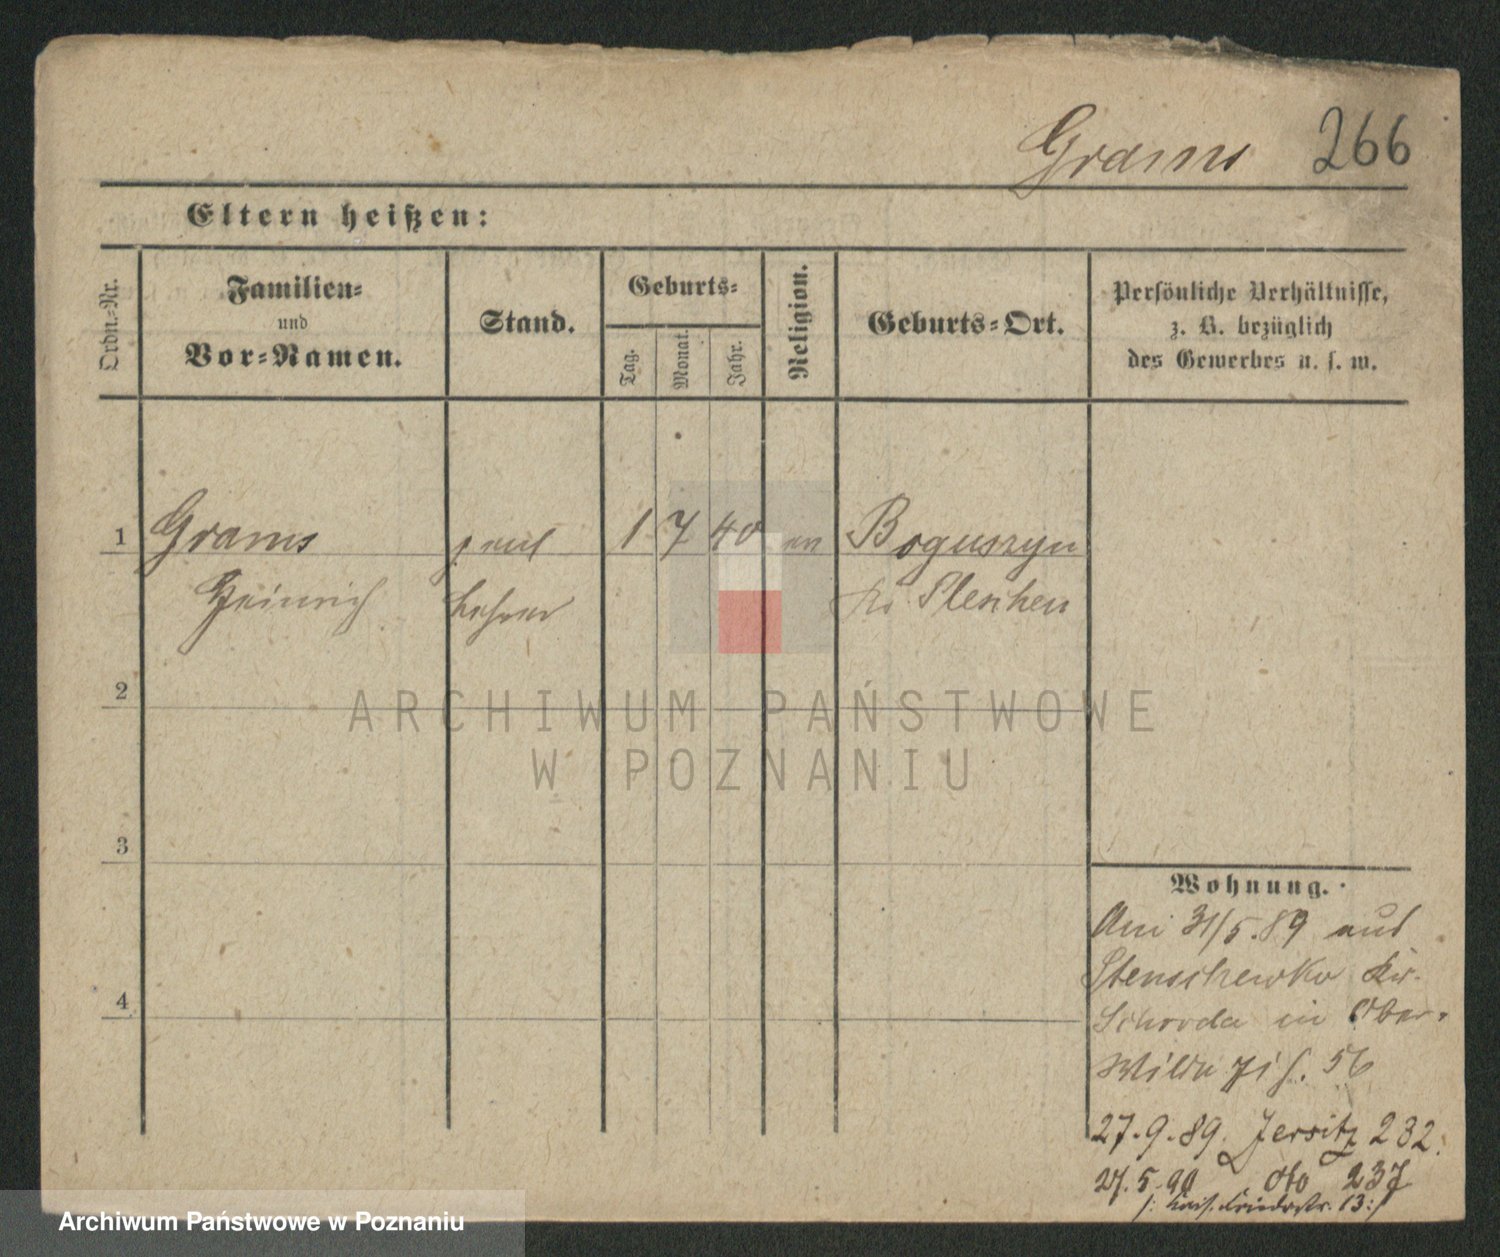 Grams 266
Eltern heißen:
Ordn.-Nr.
Familien-
und
Vor-Namen.
Stand.
Geburts-
Tag.
Monat.
Jahr.
Religion.
Geburts-Ort.
Persönliche Verhältnisse,
z. B. bezüglich
des Gewerbes u. s. w.
1 Grams penf 1 7 40 ev Boguszyn
Heinrich Lehrer Kr. Pleschen
2
ARCHIWUM PAŃSTWOWE
W POZNANIU
3
4
Wohnung.
Am 31/5.89 aus
Stenschewko Kr.
Schroda in Ober-
Wilda 56
27.9.89. Jersitz 232.
27.5.90 dto 237
13:/
Archiwum Państwowe w Poznaniu